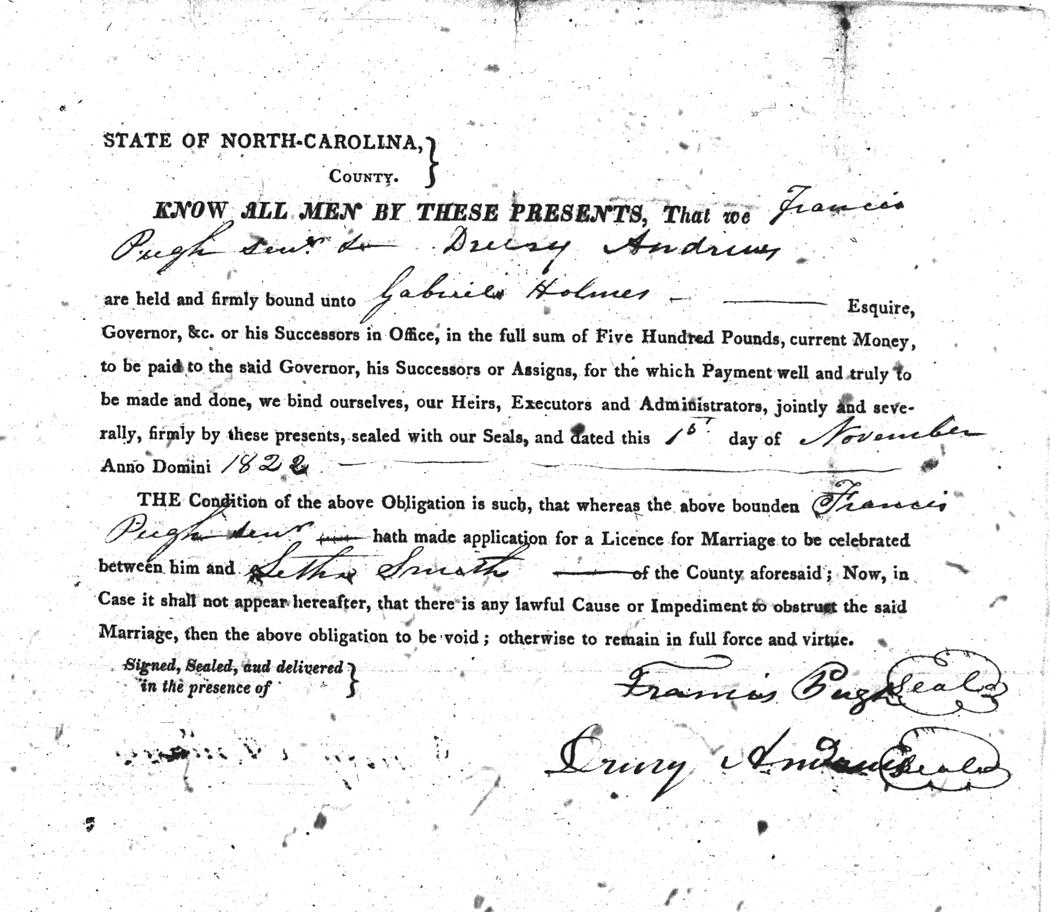 STATE OF NORTH-CAROLINA,
COUNTY.
KNOW ALL MEN BY THESE PRESENTS, That we Francis
Pugh senr & Drury Andrews
are held and firmly bound unto Gabriel Holmes Esquire,
Governor, &c. or his Successors in Office, in the full sum of Five Hundred Pounds, current Money,
to be paid to the said Governor, his Successors or Assigns, for the which Payment well and truly to
be made and done, we bind ourselves, our Heirs, Executors and Administrators, jointly and seve-
rally, firmly by these presents, sealed with our Seals, and dated this 1st day of November
Anno Domini 1822
THE Condition of the above Obligation is such, that whereas the above bounden Francis
Pugh senr hath made application for a Licence for Marriage to be celebrated
between him and Smith of the County aforesaid; Now, in
Case it shall not appear hereafter, that there is any lawful Cause or Impediment to obstruct the said
Marriage, then the above obligation to be void; otherwise to remain in full force and virtue.
Signed, Sealed, and delivered
in the presence of
Francis Pugh Seal
Drury Andrews Seal